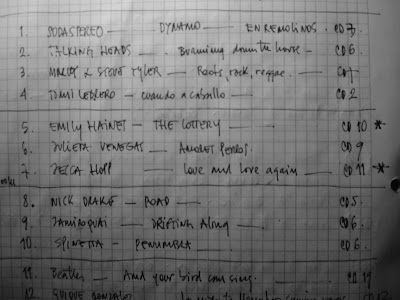 1. SODA STEREO — DYNAMO — EN REMOLINOS. CD 7.
2. TALKING HEADS — Burning down the house — CD 6.
3. MARLEY & STEVE TYLER — Roots, rock, reggae. — CD 1
4. TOMI LEBRERO — cuando a caballo — CD 2
5. EMILY HAINES — THE LOTTERY — CD 10 *
6. JULIETA VENEGAS — AMORES PERROS. CD 9
7. HOPP — love and love again — CD 11 *
8. NICK DRAKE — ROAD — CD 5.
9. JAMIROQUAI — DRIFTING Along — CD 6.
10. SPINETTA — PENUMBRA — CD 6.
11. Beatles — And your bird can sing. CD 19
12. QUIQUE